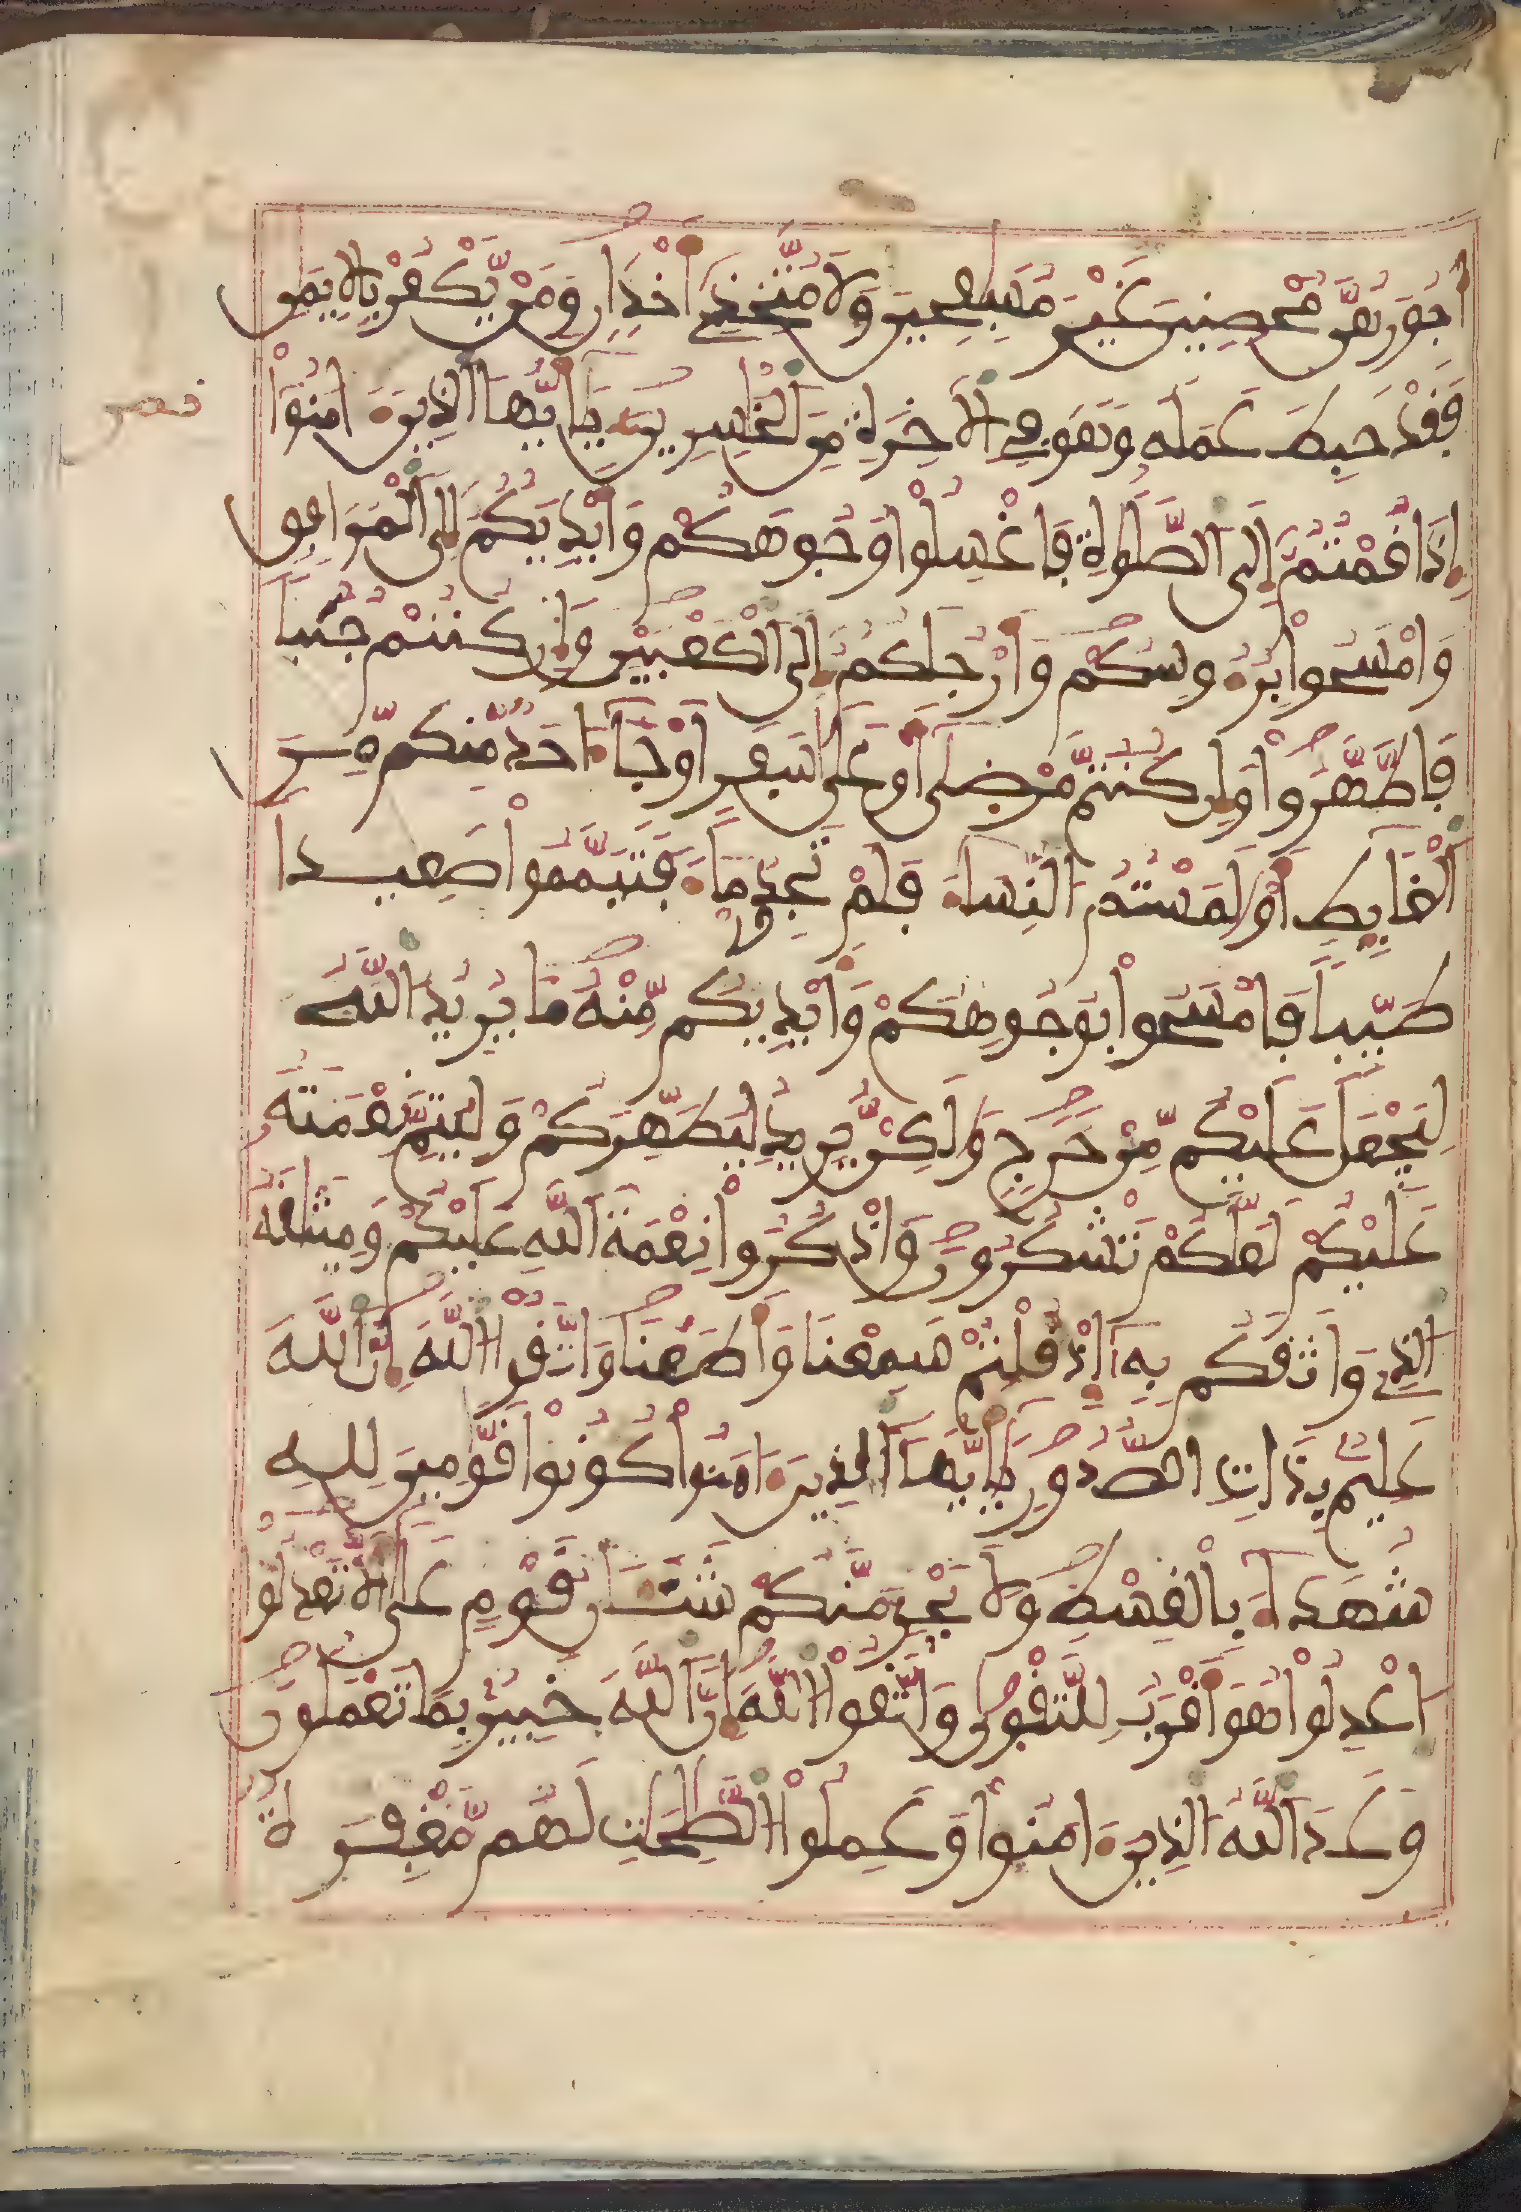 أُجُورَهُنَّ مُحْصِنِينَ غَيْرَ مُسَٰفِحِينَ وَلَا مُتَّخِذِےٓ أَخْدَانٖ وَمَنْ يَّكْفُرْ بِالِايمَٰنِ
فَقَدْ حَبِطَ عَمَلُهُ وَهُوَ فِے اِ۬لَاخِرَةِ مِنَ اَ۬لْخَٰسِرِينَ يَٰأَيُّهَا اَ۬لذِينَ ءَامَنُوٓاْ
إِذَا قُمْتُمُۥٓ إِلَى اَ۬لصَّلَوٰةِ فَاغْسِلُواْ وُجُوهَكُمْ وَأَيْدِيَكُمُۥٓ إِلَى اَ۬لْمَرَافِقِ
وَامْسَحُواْ بِرُءُوسِكُمْ وَأَرْجُلَكُمُۥٓ إِلَى اَ۬لْكَعْبَيْنِ وَإِن كُنتُمْ جُنُباٗ
فَاطَّهَّرُواْ وَإِن كُنتُم مَّرْضَىٰٓ أَوْ عَلَىٰ سَفَرٍ اَوْ جَآءَ احَدٞ مِّنكُم مِّنَ
اَ۬لْغَآئِطِ أَوْ لَٰمَسْتُمُ اُ۬لنِّسَآءَ فَلَمْ تَجِدُواْ مَآءٗ فَتَيَمَّمُواْ صَعِيداٗ
طَيِّباٗ فَامْسَحُواْ بِوُجُوهِكُمْ وَأَيْدِيكُم مِّنْهُ مَا يُرِيدُ اُ۬للَّهُ
لِيَجْعَلَ عَلَيْكُم مِّنْ حَرَجٖ وَلَٰكِنْ يُّرِيدُ لِيُطَهِّرَكُمْ وَلِيُتِمَّ نِعْمَتَهُ
عَلَيْكُمْ لَعَلَّكُمْ تَشْكُرُونَ وَاذْكُرُواْ نِعْمَةَ اَ۬للَّهِ عَلَيْكُمْ وَمِيثَٰقَهُ
اُ۬لذِے وَاثَقَكُم بِهِۦٓ إِذْ قُلْتُمْ سَمِعْنَا وَأَطَعْنَا وَاتَّقُواْ اُ۬للَّهَ إِنَّ اَ۬للَّهَ
عَلِيمُۢ بِذَاتِ اِ۬لصُّدُورِ يَٰأَيُّهَا اَ۬لذِينَ ءَامَنُواْ كُونُواْ قَوَّٰمِينَ لِلهِ
شُهَدَآءَ بِالْقِسْطِ وَلَا يَجْرِمَنَّكُمْ شَنَـَٔانُ قَوْمٍ عَلَىٰٓ أَلَّا تَعْدِلُواْ
اُ۪عْدِلُواْ هُوَ أَقْرَبُ لِلتَّقْوَىٰ وَاتَّقُواْ اُ۬للَّهَ إِنَّ اَ۬للَّهَ خَبِيرُۢ بِمَا تَعْمَلُونَ
وَعَدَ اَ۬للَّهُ اُ۬لذِينَ ءَامَنُواْ وَعَمِلُواْ اُ۬لصَّٰلِحَٰتِ لَهُم مَّغْفِرَةٞ